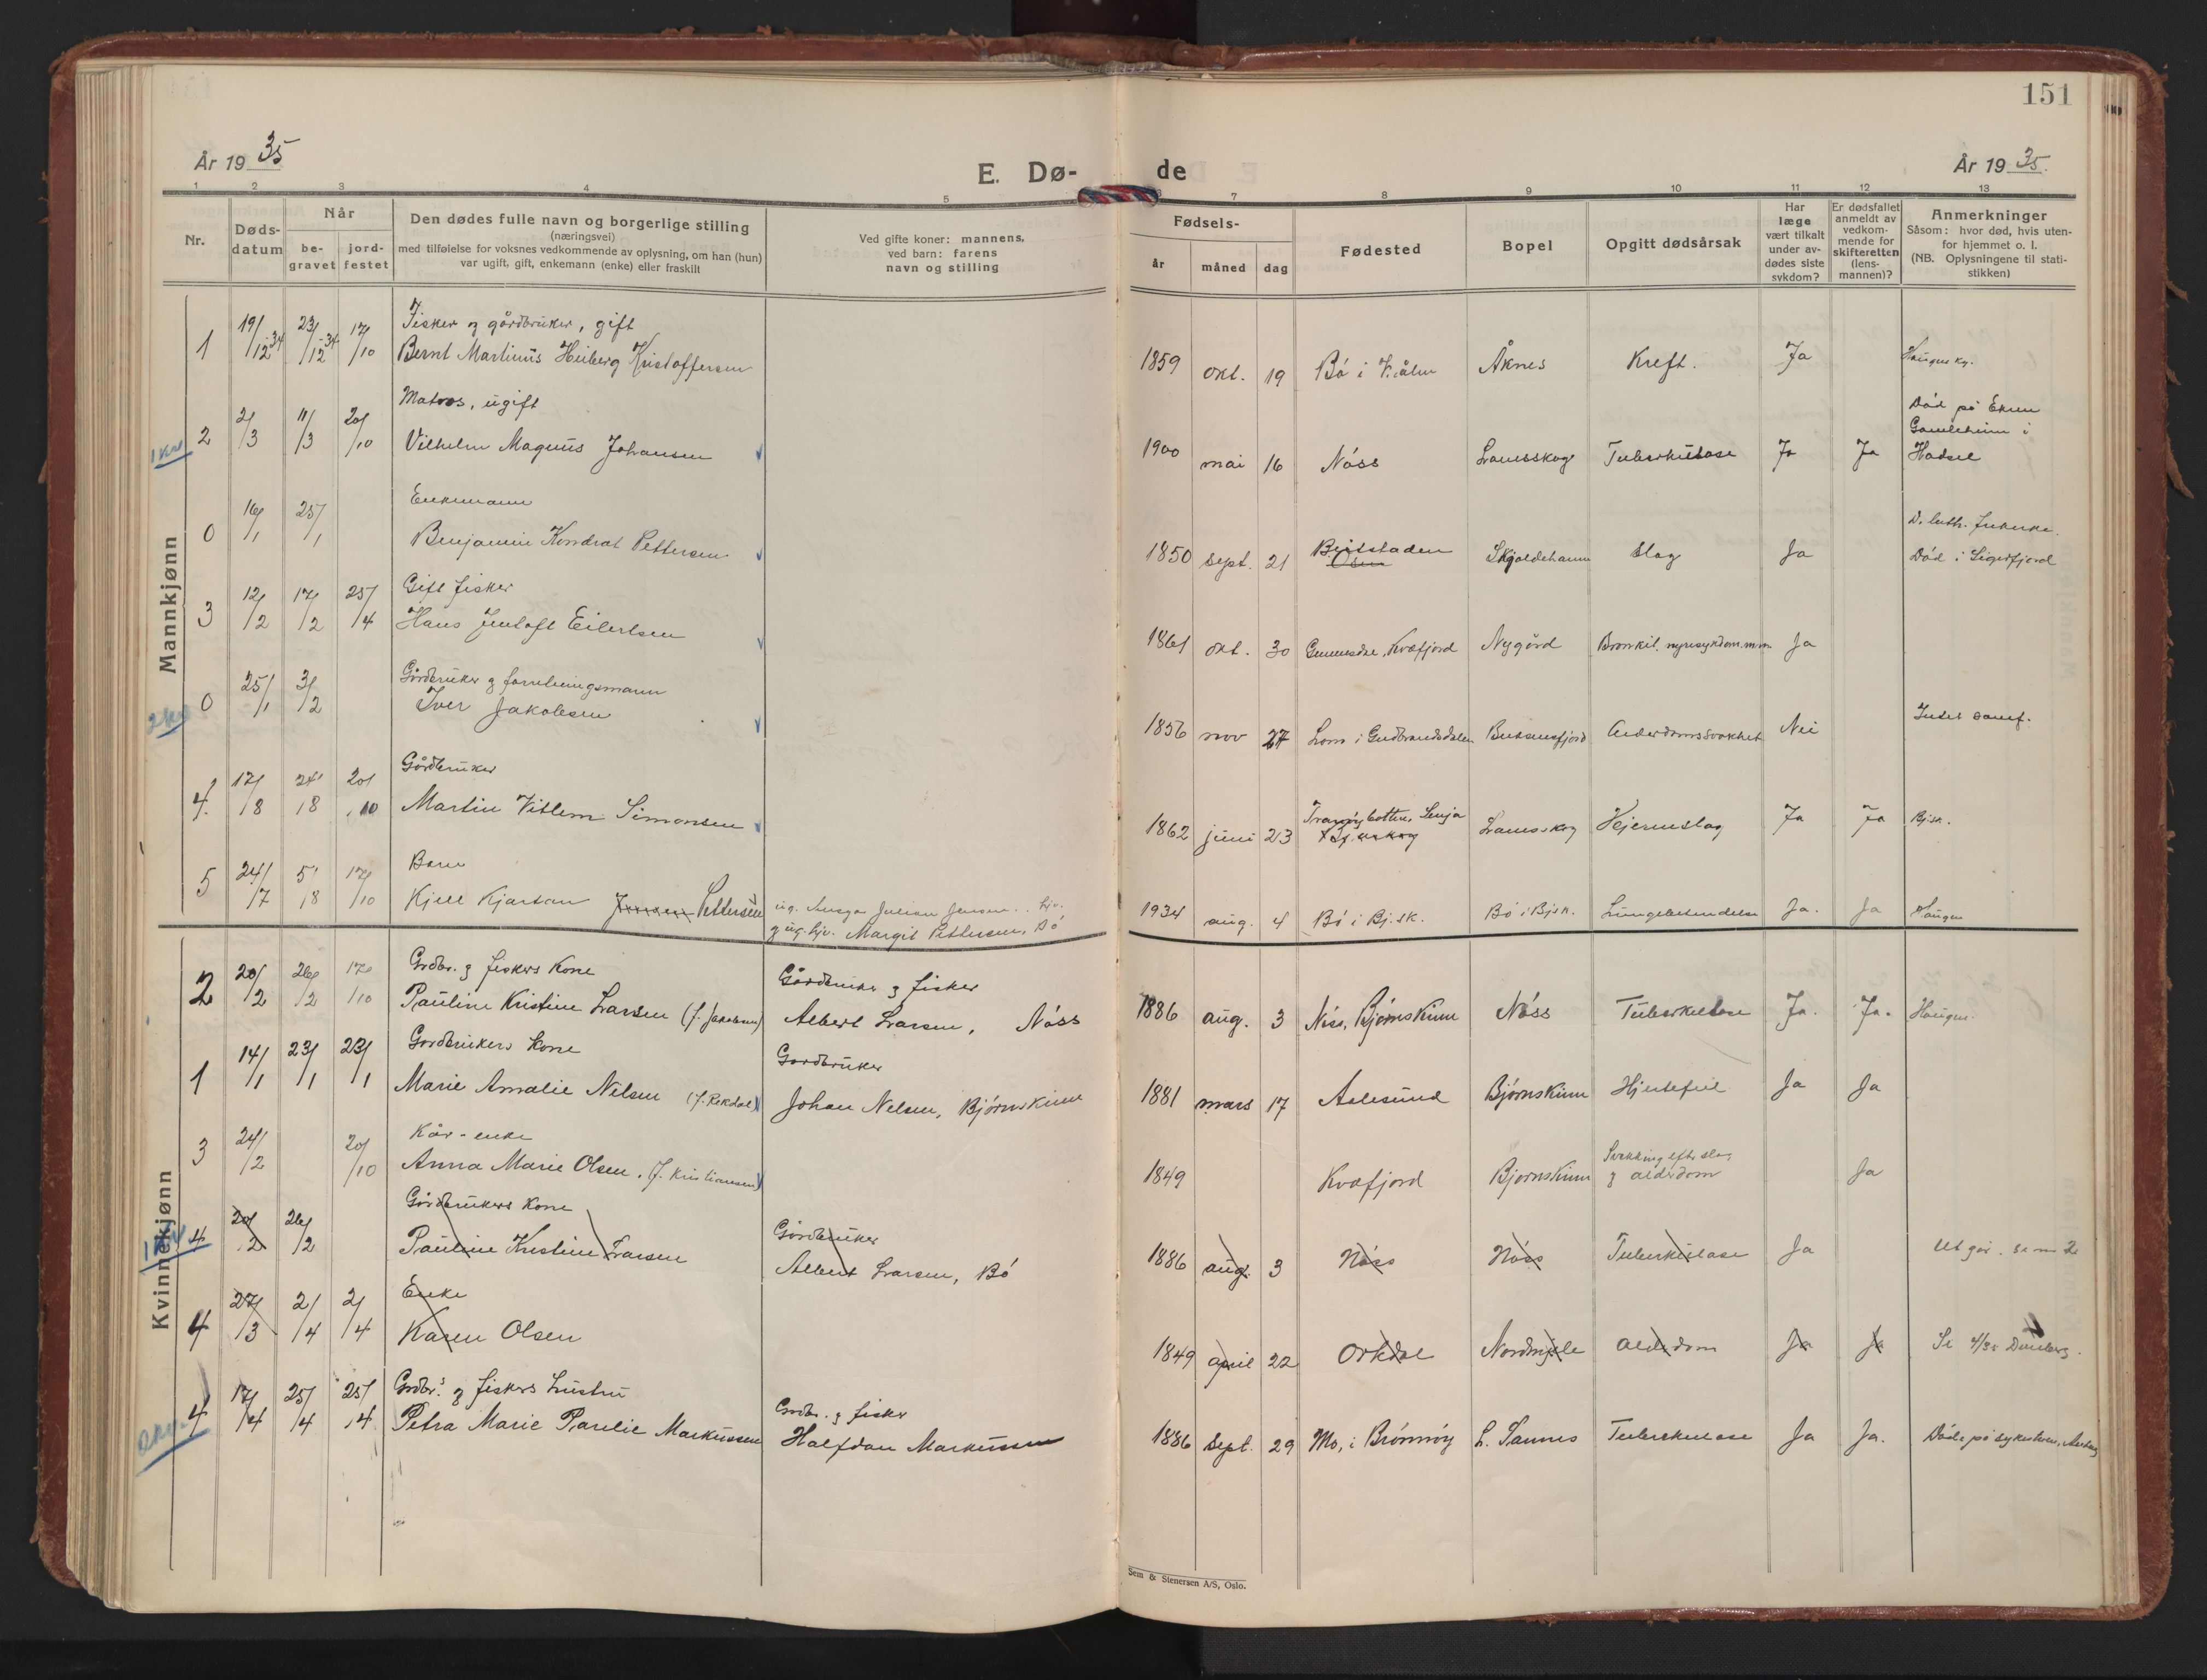 151
År 1935
E. Dø-
de
År 1935.
1 2 3 4 5 6 7 8 9 10 11 12 13
Nr.
Døds-
datum
Når
be-
gravet
jord-
festet
Den dødes fulle navn og borgerlige stilling
(næringsvei)
med tilføielse for voksnes vedkommende av oplysning, om han (hun)
var ugift, gift, enkemann (enke) eller fraskilt
Ved gifte koner: mannens,
ved barn: farens
navn og stilling
Fødsels-
år
måned
dag
Fødested
Bopel
Opgitt dødsårsak
Har
læge
vært tilkalt
under av-
dødes siste
sykdom?
Er dødsfallet
anmeldt av
vedkom-
mende for
skifteretten
(lens-
mannen)?
Anmerkninger
Såsom: hvor død, hvis uten-
for hjemmet o. l.
(NB. Oplysningene til stati-
stikken)
Mannkjønn
Fisker og gårdbruker, gift
1 19/12-34 23/12-34 17/10 Bernt Martinus Heiberg Kristoffersen 1859 okt. 19 Bö i Åknes Kreft. Ja
Matros, ugift
Död på
Gamleheim i
2 2/3 11/3 20/10 Vilhelm Magnus Johansen 1900 mai 16 Nöss Lanesskog Tuberkulose Ja Ja Hadsel
Enkemann
0 16/1 25/1 Benjamin Kondrat Pettersen 1850 sept. 21 Skjoldehamn Slag Ja
Död i Sigerfjord
Gift fisker
3 12/2 17/2 25/4 Hans Jentoft Eilertsen 1861 okt. 30 Kvæfjord Nygård Bronkit. nyresykdom m.m Ja
Gårdbruker og forreningsmann
0 25/1 3/2 Iver Jakobsen 1856 nov 27 Lom i Gudbrandsdalen Buksnesfjord Alderdomssvakhet Nei
Gårdbruker
4. 17/8 24/8 20/10 Martin Vitlem Simonsen 1862 juni 23 Tranöybotten, Senja Lanesskog Hjernslag Ja Ja Bjsk.
Barn
5 24/7 5/8 17/10 Kjell Kjartan Jensen Pettersen ug. Ansgar Julian Jensen
og ug. Margit Pettersen, Bö 1934 aug. 4 Bö i Bj.sk. Bö i Bjsk. Lungebetendelse Ja. Ja Haugnes
Kvinnekjønn
Grdbr. og fiskers kone
Gårdbruker og fisker
2 20/2 26/2 17/10 Pauline Kristine Larsen (f. Jakobsen) Albert Larsen, Nöss 1886 aug. 3 Nöss, Bjørnskinn Nöss Tuberkulose Ja. Ja. Haugnes
Gardbrukers kone
Gardbruker
1 14/1 23/1 23/1 Marie Amalie Nilsen (f. Rekdal) Johan Nelsen, Björnskinn 1881 mars 17 Aalesund Björnskinn Hjertefeil Ja Ja
Kår-enke
3 24/2 20/10 Anna Marie Olsen. (f. Kristiansen) 1849 Kvæfjord Bjornskinn Svekking efter slag
og alderdom Ja
Gårdbrukers kone
Gårdbruker
4 20/2 26/2 Pauline Kristine Larsen Albert Larsen, Bö 1886 aug. 3 Nöss Nöss Tuberkulose Ja Utgår. se nr 2
Enke
4 27/3 2/4 2/4 Karen Olsen 1849 april 22 Orkdal Nordmjele alderdom Ja Ja
Grdbr.s og fiskers hustru
Grdbr. og fisker
4 17/4 25/4 25/4 Petra Marie Parelie Markussen Halfdan Markussen 1886 sept. 29 Mo, i Brönnöy L. Sannes Tuberkulose Ja Ja.
Sem & Stenersen A/S, Oslo.